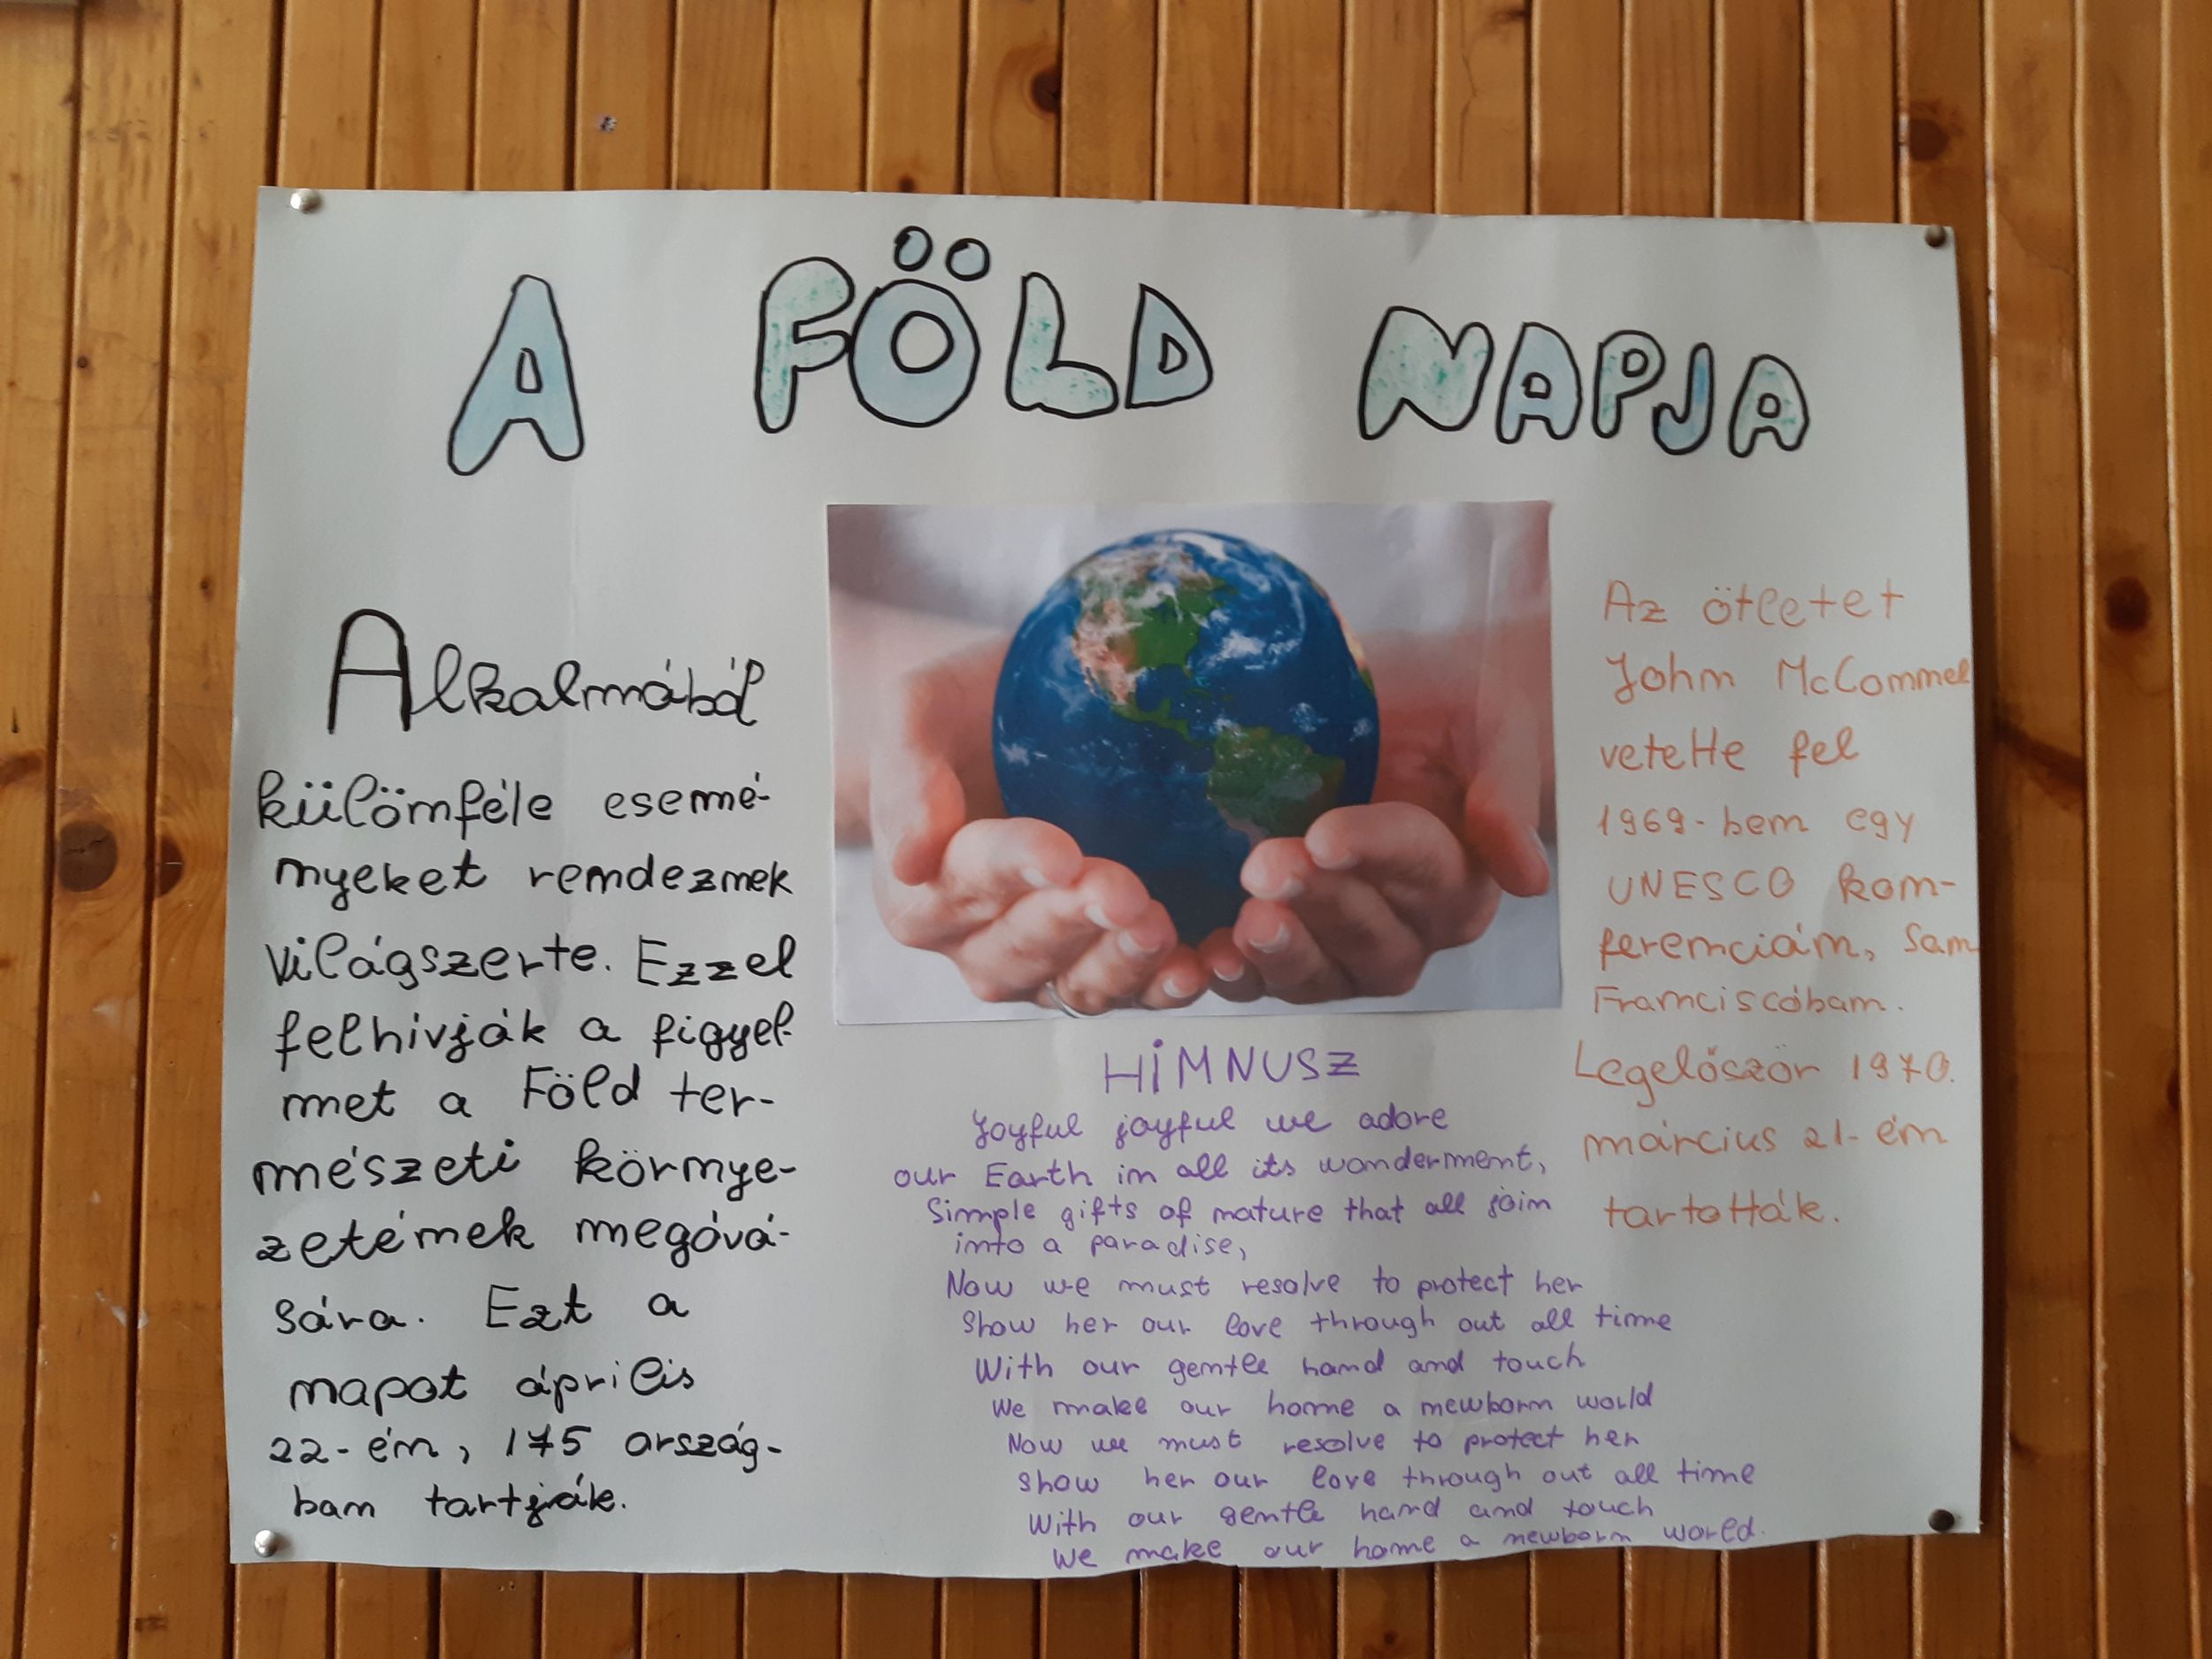 A FÖLD NAPJA
Alkalmából
különféle esemé-
nyeket rendeznek
világszerte. Ezzel
felhívják a figyel-
met a Föld ter-
mészeti környe-
zetének megóvá-
sára. Ezt a
napot április
22-én, 175 ország-
ban tartják.
HIMNUSZ
Joyful joyful we adore
our Earth in all its wonderment,
Simple gifts of nature that all join
into a paradise,
Now we must resolve to protect her
Show her our love through out all time
With our gentle hand and touch
We make our home a newborn world
Now we must resolve to protect her
show her our love through out all time
With our gentle hand and touch
We make our home a newborn world.
Az ötletet
John McConnel
vetette fel
1969-ben egy
UNESCO kon-
ferencián, San
Franciscóban.
Legelőször 1970.
március 21-én
tartották.